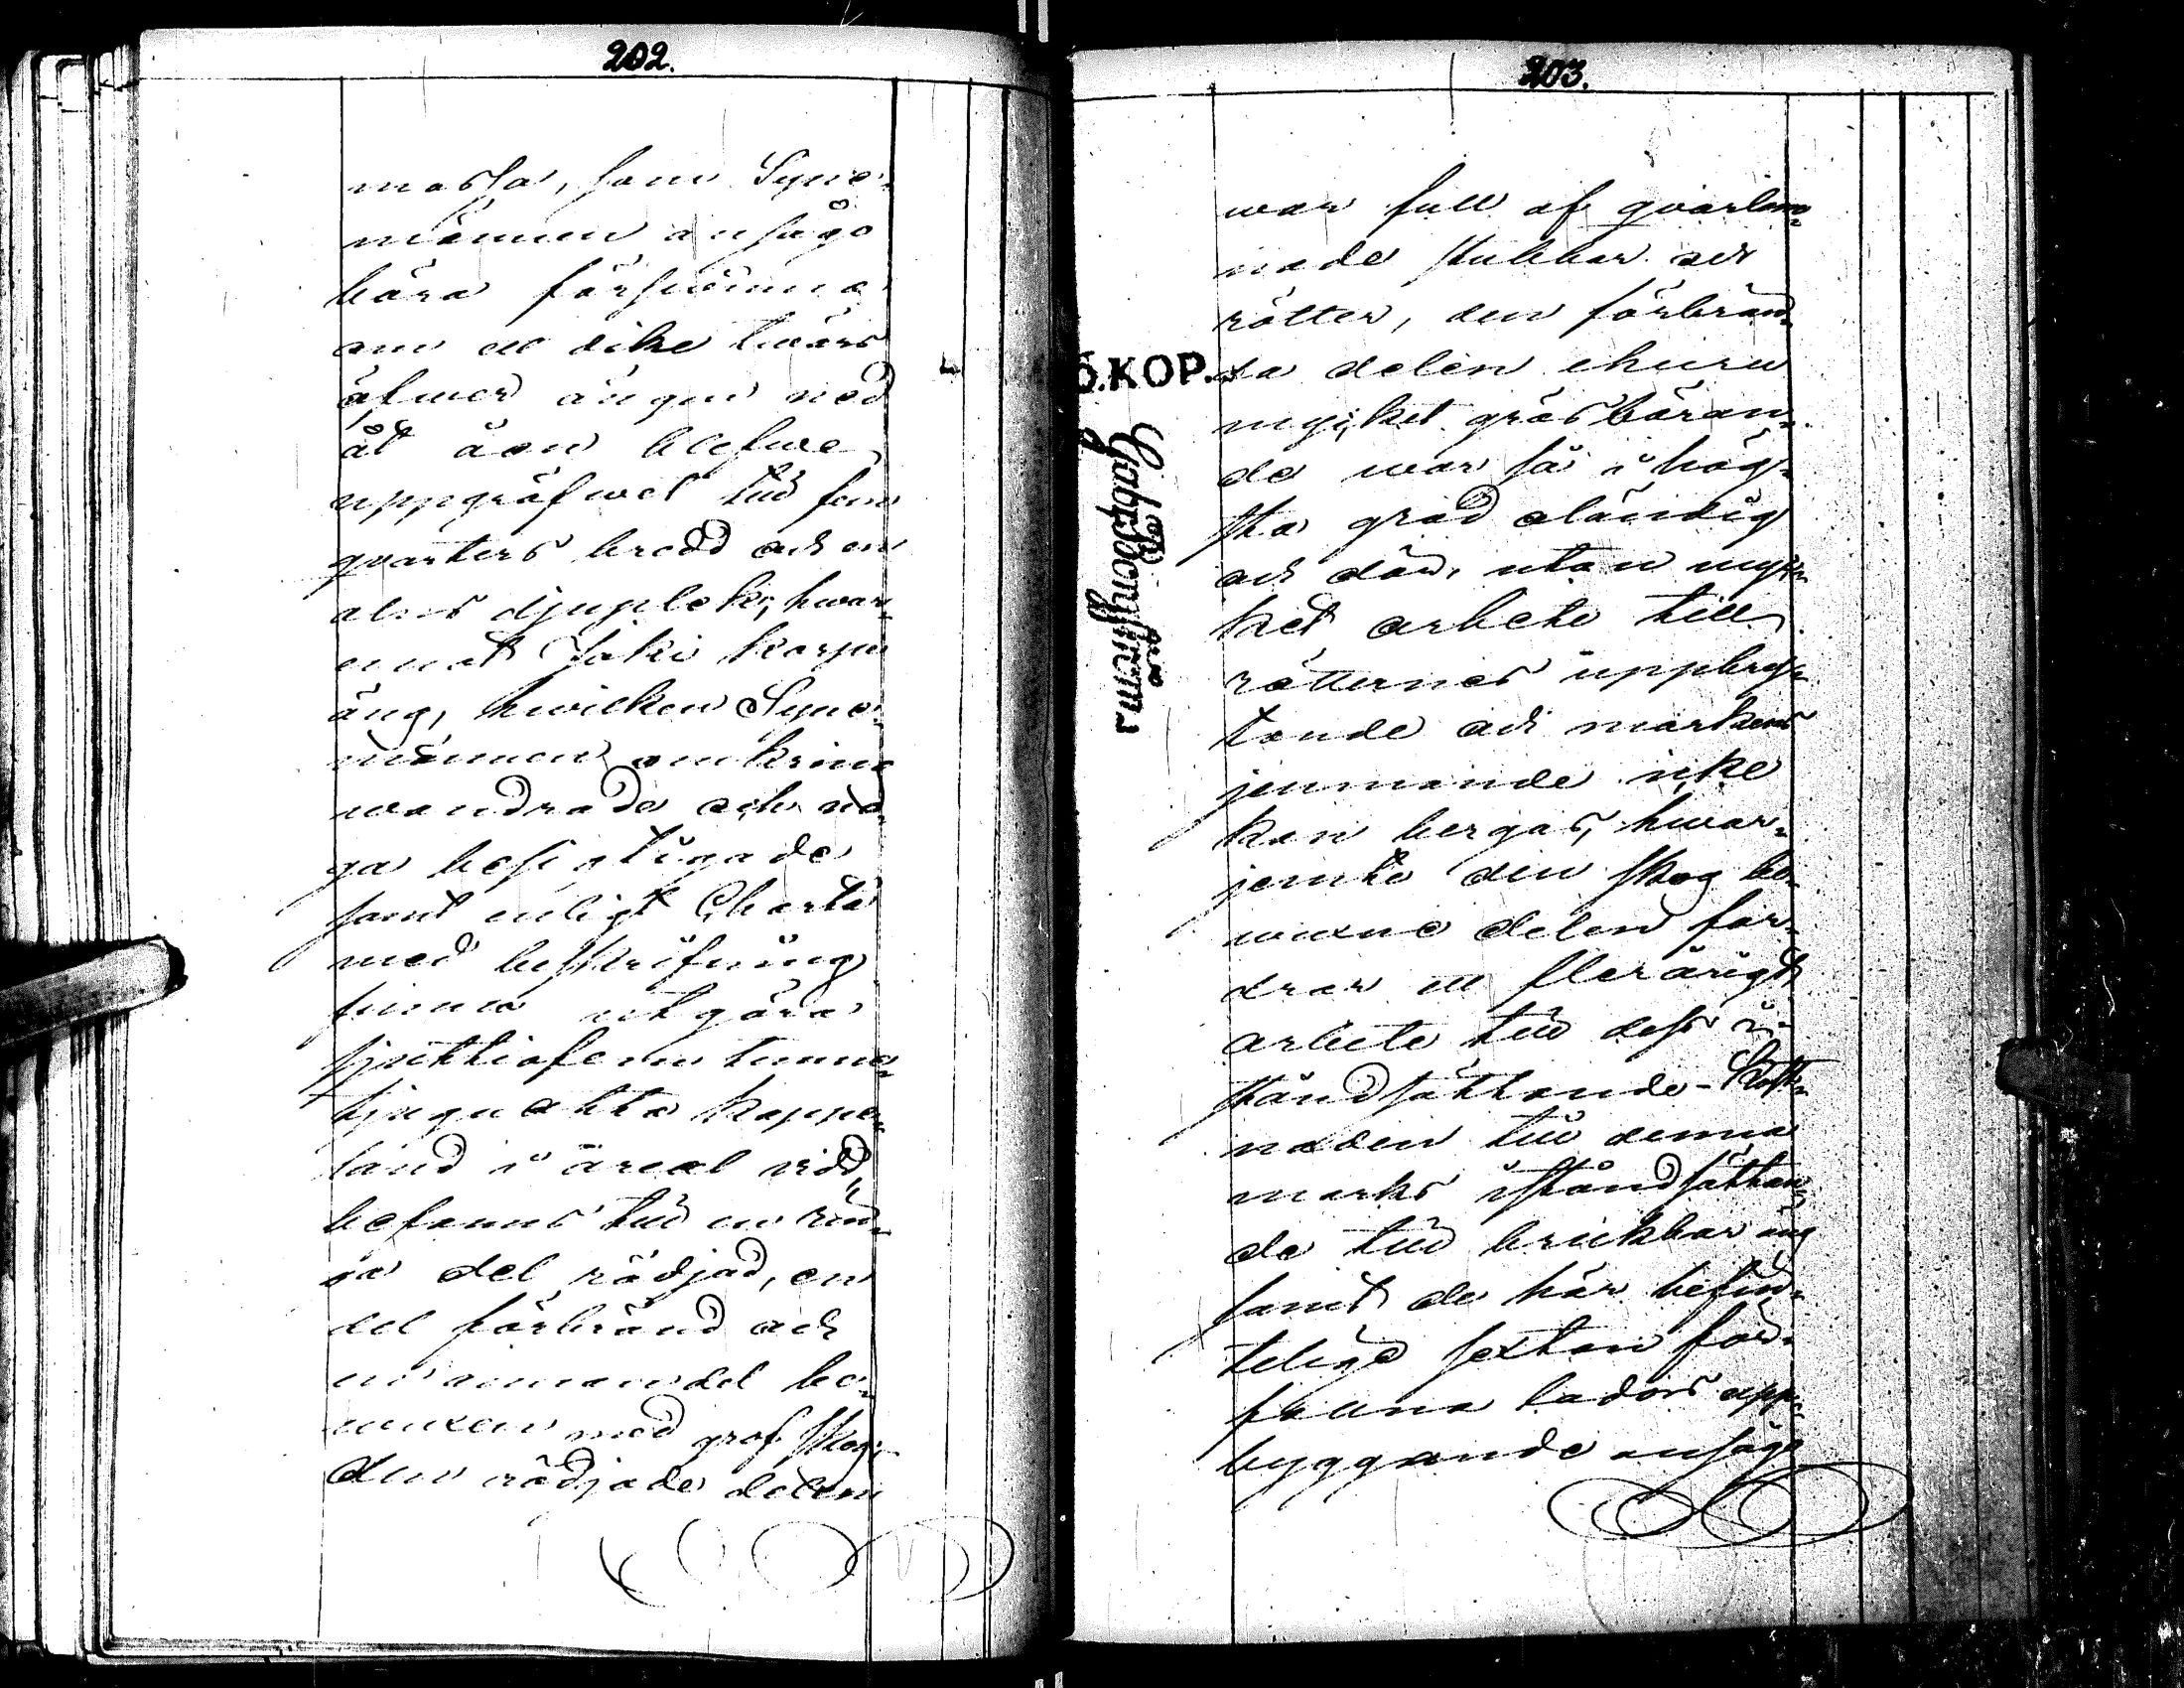 202.
mossa, som Syne-
männen ansågo
böra försvinna
om ett dike twärs
öfwer ängen ned
åt åen blefwe
uppgräfwet till fem
qvarters bredd och en
alns djuplek; hwar-
emot Joki Korpi
äng, hwilken Syne-
männen omkring
wandrade och no-
ga besigtigade
samt enligt Charta
med beskrifning
finna utgöra
sjuttiofem tunne-
tjuguåtta kappe-
land i areal vidd,
befanns till en rin-
ga del rödjad, en
del förbränd och
en annan del be-
wuxen med grof skog.
Den rödjade delen
203.
war full af qvarläm-
nade stubbar och
rötter, den förbrän-
da delen ehuru
mycket gräsbäran-
de war så i hög-
sta grad oländig
att den utan myc-
ket arbete till
rötternes uppbry-
tande och markens
jemnande icke
kan bergas, hwar-
jemte den skog be-
wuxne delen for-
drar ett flerårigt
arbete till dess i-
ståndsättande - Kost-
naden till denna
marks iståndsättan-
de till brukbar äng
samt de här befin-
telige sexton för-
fallna ladors upp-
byggande ansågo
Ö.KOP.